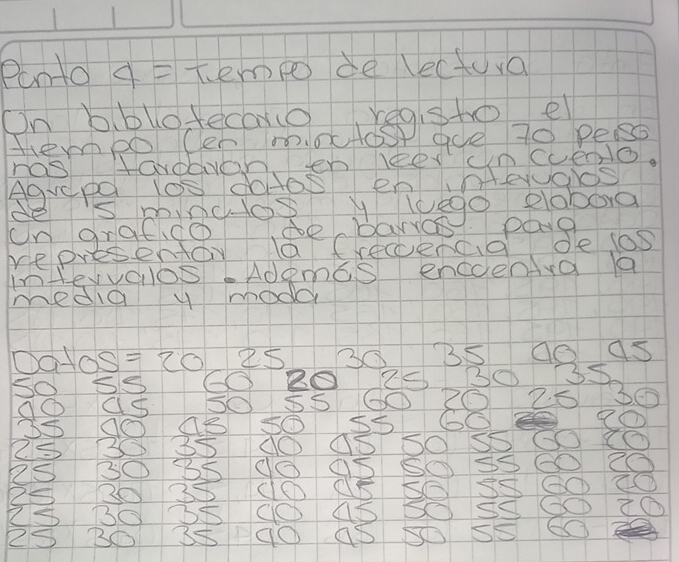 Punto 4 = Tiempo de lectura
Un bibliotecario registro el
tiempo (en minutos) que 70 perso
nas tardaron en leer un cuento.
Agrupa los datos en intervalos
de 5 minutos y luego elabora
un grafico de barras para
representar la frecuencia de los
intervalos. Además encuentra la
media y moda
Datos = 20 25 30 35 40 45
50 55 60 20 25 30 35
40 45 50 55 60 20 25 30
35 40 45 50 55 60 20
25 30 35 40 45 50 55 60 20
25 30 35 40 45 50 55 60 20
25 30 35 40 45 50 55 60 20
25 30 35 40 45 50 55 60 20
25 30 35 40 45 50 55 60